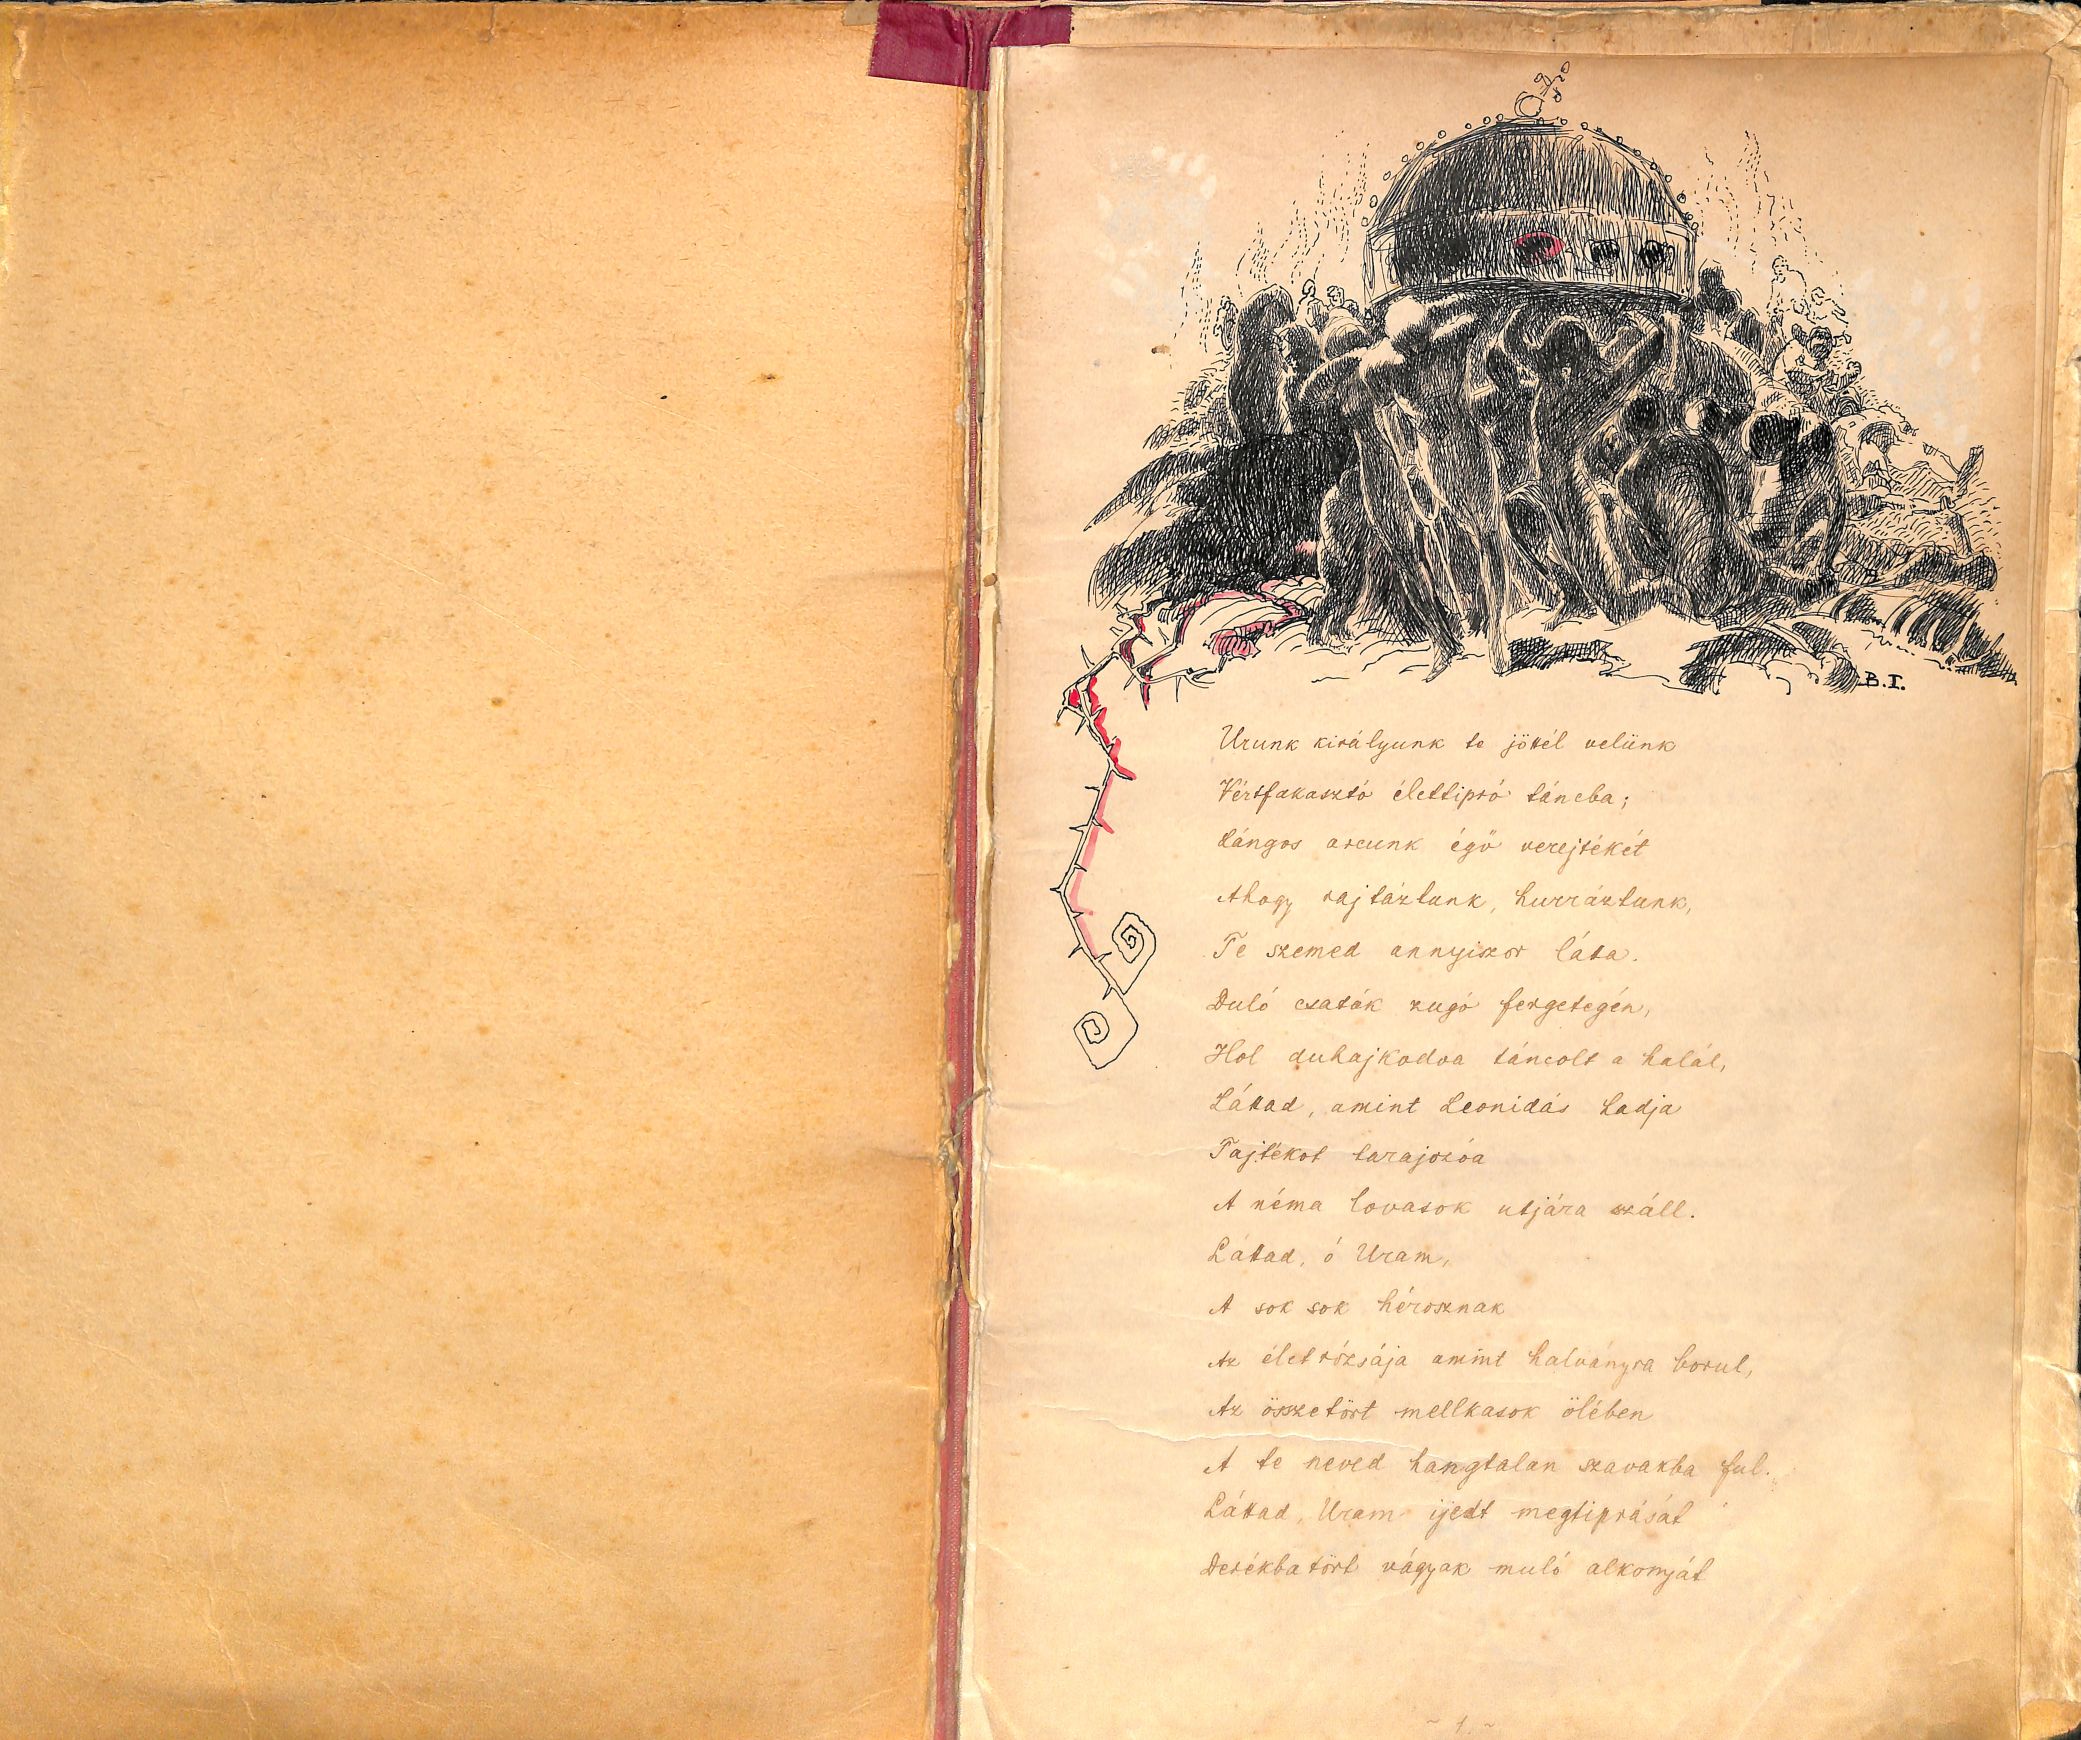 B.I.
Urunk királyunk te jöttél velünk
Vértfakasztó élettipró táncba;
Lángos arcunk égő verejtékét
Ahogy rajtáztunk, hurráztunk,
Te szemed annyiszor látta.
Duló csaták zugó fergetegén,
Hol duhajkodva táncolt a halál,
Láttad, amint Leonidás hadja
Tajtékot tarajozva
A néma lovasok utjára száll.
Láttad, ó Uram,
A sok sok hérosznak
Az élet rózsája amint halványra borul,
Az összetört mellkasok ölében
A te neved hangtalan szavakba ful.
Láttad, Uram ijedt megtiprását
Derékbatört vágyak muló alkonyját
~ 1. ~